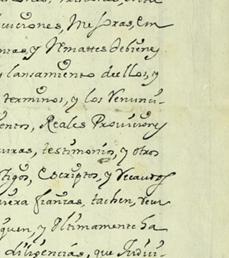 uiciones, Mejoras, em
y Remattes de bienes
y lansamiento dellos, y
terminos, y los Renunci
Reales Proviciones
testimonios, y otros
tigos, Escriptos, y Recaudos
fianzas, tachen,
quen, y Ultimamente ha
diligencias, que Judici